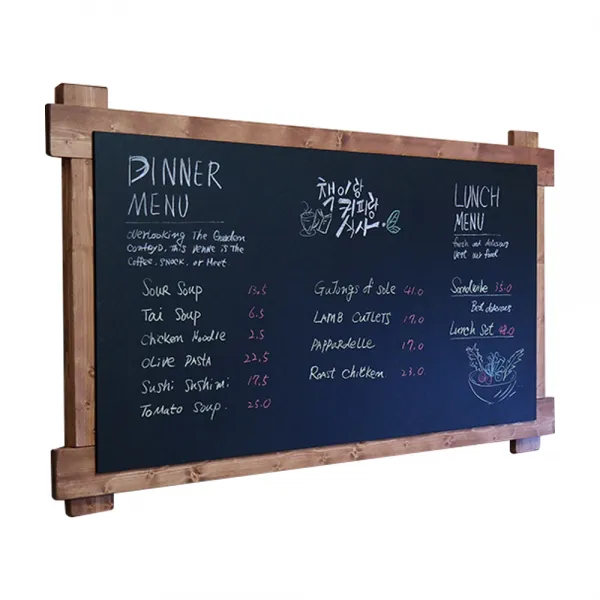 DINNER
MENU
overlooking The Guardon
Contoyd, This venue is The
Coffee, snack, or Meet
Sour Soup 13.5
Tai Soup 6.5
Chicken Noodle 2.5
OLive PASTA 22.5
Sushi Sushimi 17.5
Tomato Soup. 25.0
책이랑
커피랑
식사.
Gulongs of sole 41.0
LAMB CUTLETS 17.0
PAPPardelle 17.0
Roast Chicken 23.0
LUNCH
MENU
fresh and delicious
best our food
Sandwike 35.0
Best delicious
Lunch Set 48.0